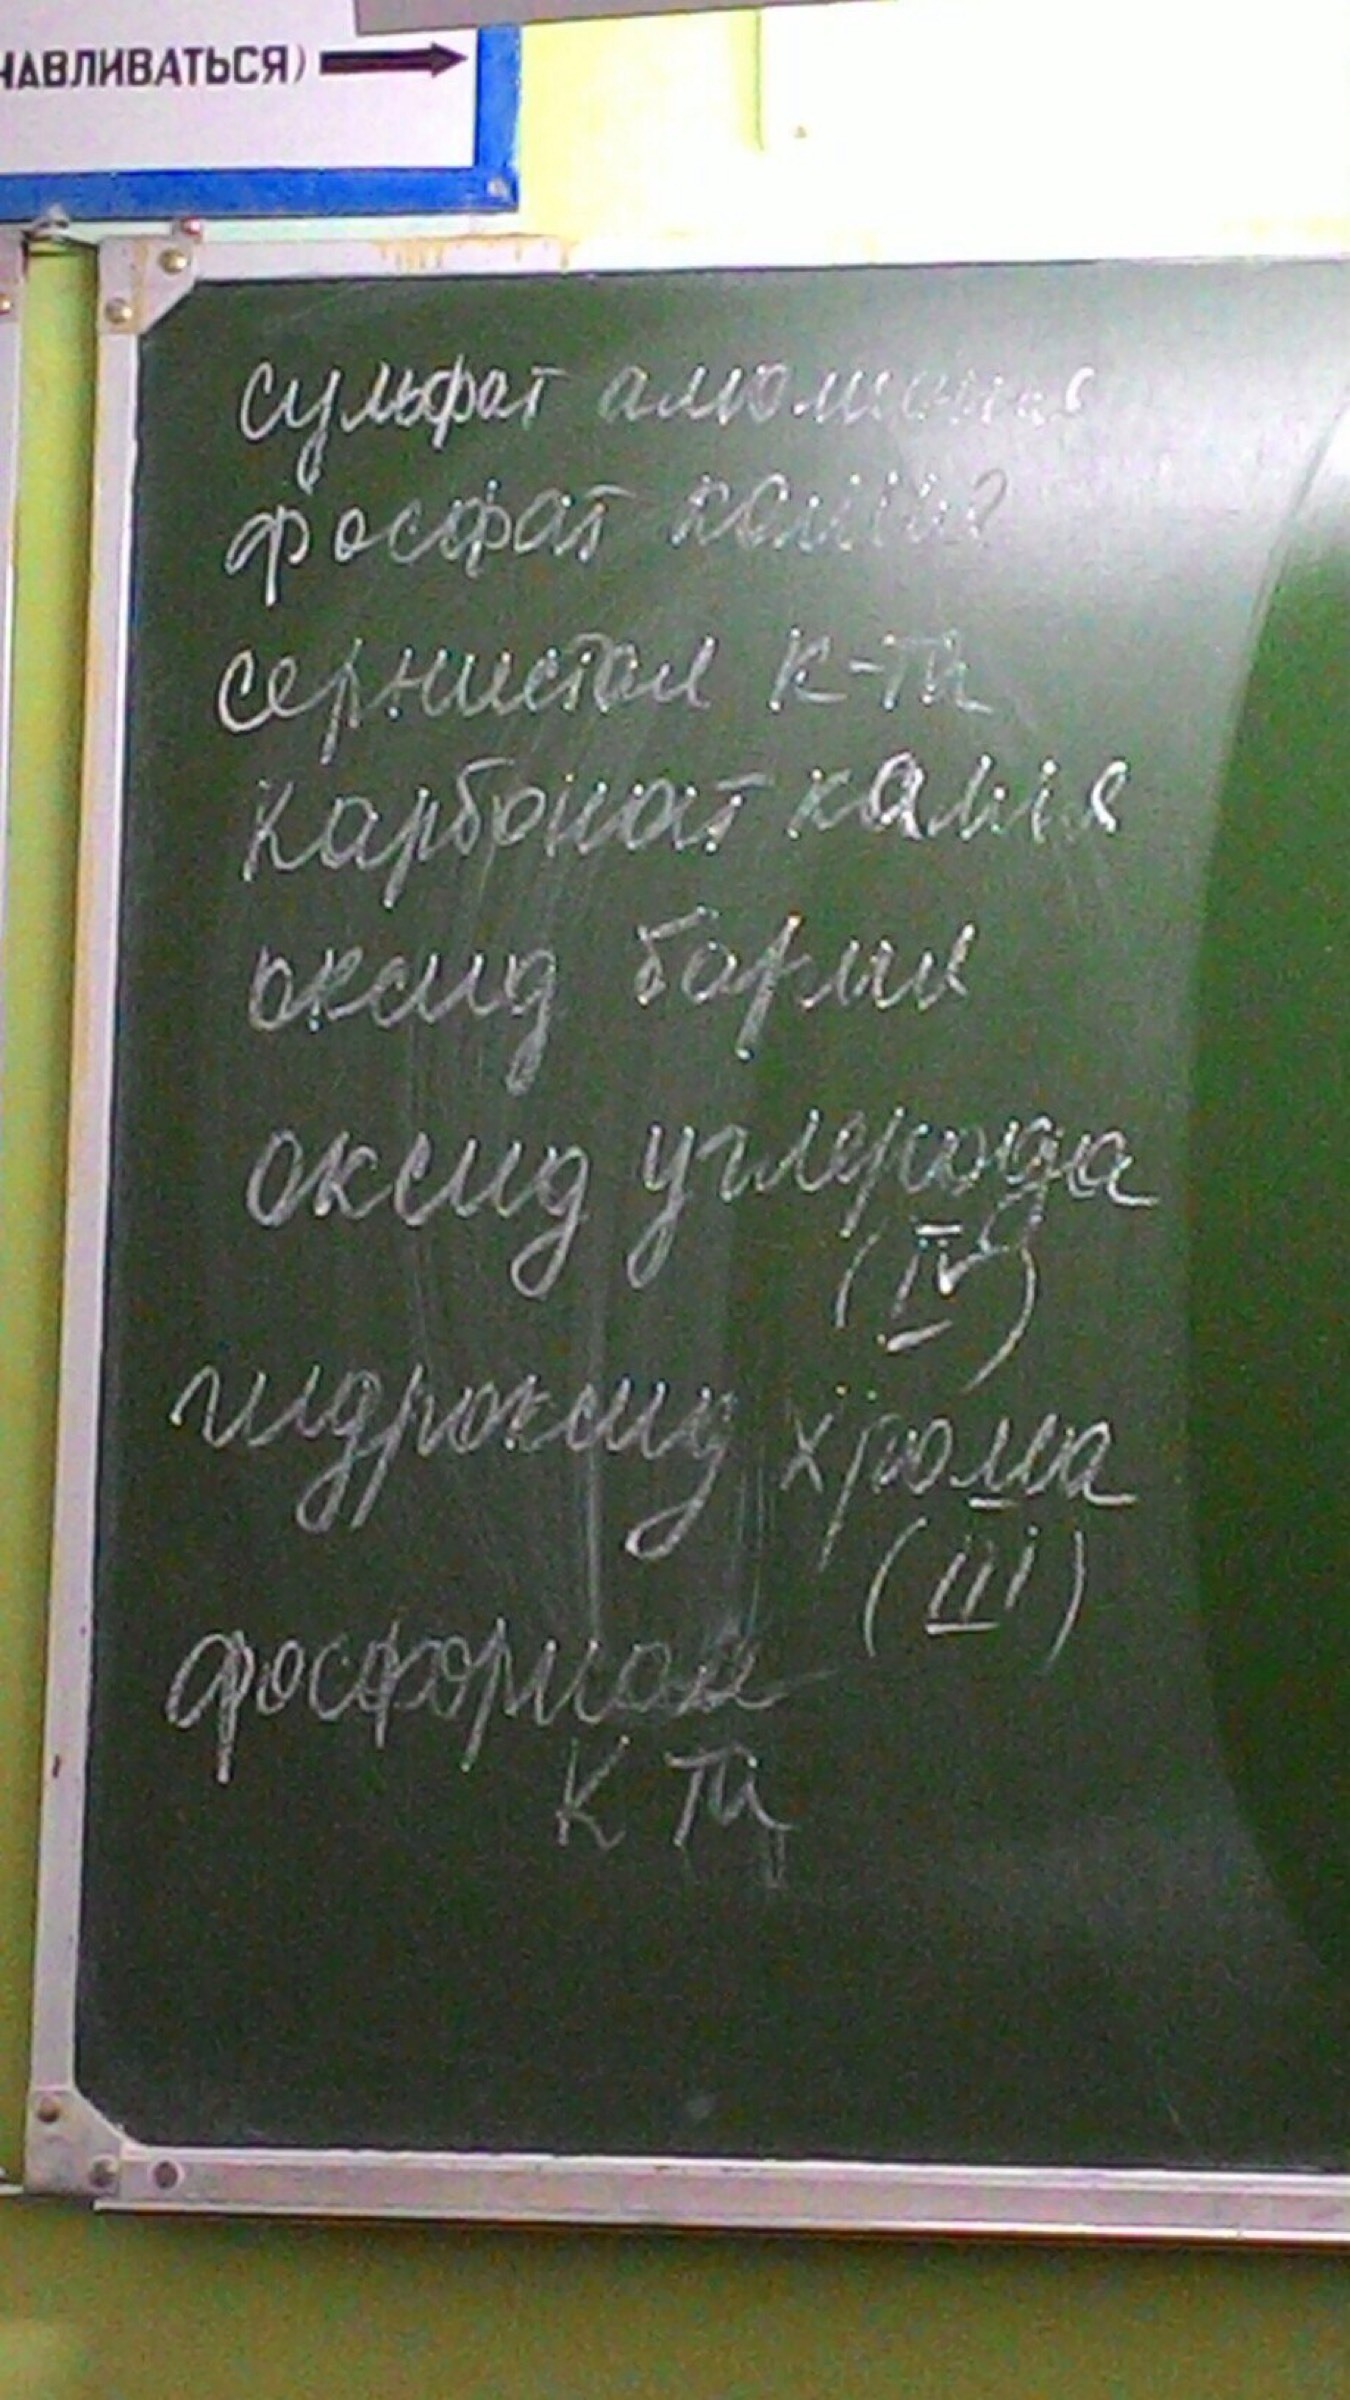 НАВЛИВАТЬСЯ)
сульфат алюминия
фосфат калия
сернистая к-та
карбонат калия
оксид бария
оксид углерода
(IV)
гидроксид хрома
(III)
фосфорная
к та